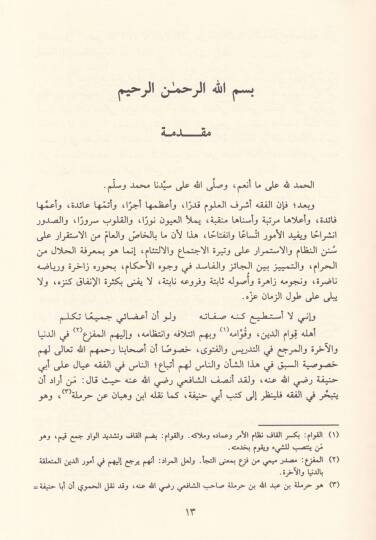 بسم الله الرحمٰن الرحيم
مقدمة
الحمد لله على ما أنعم، وصلّى الله على سيّدنا محمد وسلّم.
وبعد؛ فإن الفقه أشرف العلوم قدرًا، وأعظمها أجرًا، وأتمّها عائدة، وأعمّها
فائدة، وأعلاها مرتبة وأسناها منقبة، يملأ العيون نورًا، والقلوب سرورًا، والصدور
انشراحًا ويفيد الأمور اتّساعًا وانفتاحًا، هذا لأن ما بالخاصّ والعامّ من الاستقرار على
سُنن النظام والاستمرار على وتيرة الاجتماع والالتئام، إنما هو بمعرفة الحلال من
الحرام، والتمييز بين الجائز والفاسد في وجوه الأحكام، بحوره زاخرة ورياضه
ناضرة، ونجومه زاهرة وأصوله ثابتة وفروعه نابتة، لا يفنى بكثرة الإنفاق كنزه، ولا
يبلى على طول الزمان عزّه.
وإني لا أستطيع كنه صفاته ولو أن أعضائي جميعًا تكلم
أهله قوام الدين، وقُوّامه(١) وبهم ائتلافه وانتظامه، وإليهم المفزع(٢) في الدنيا
والآخرة والمرجع في التدريس والفتوى، خصوصًا أن أصحابنا رحمهم الله تعالى لهم
خصوصية السبق في هذا الشأن والناس لهم أتباع؛ الناس في الفقه عيال على أبي
حنيفة رضي الله عنه، ولقد أنصف الشافعي رضي الله عنه حيث قال: مَن أراد أن
يتبحّر في الفقه فلينظر إلى كتب أبي حنيفة، كما نقله ابن وهبان عن حرملة(٣)، وهو
(١) القوام: بكسر القاف نظام الأمر وعماده وملاكه. والقوام: بضم القاف وتشديد الواو جمع قيم، وهو
مَن ينتصب للشيء ويقوم بخدمته.
(٢) المفزع: مصدر ميمي من فزع بمعنى التجأ. ولعل المراد: أنهم يرجع إليهم في أمور الدين المتعلقة
بالدنيا والآخرة.
(٣) هو حرملة بن عبد الله بن حرملة صاحب الشافعي رضي الله عنه، وقد نقل الحموي أن أبا حنيفة =
١٣